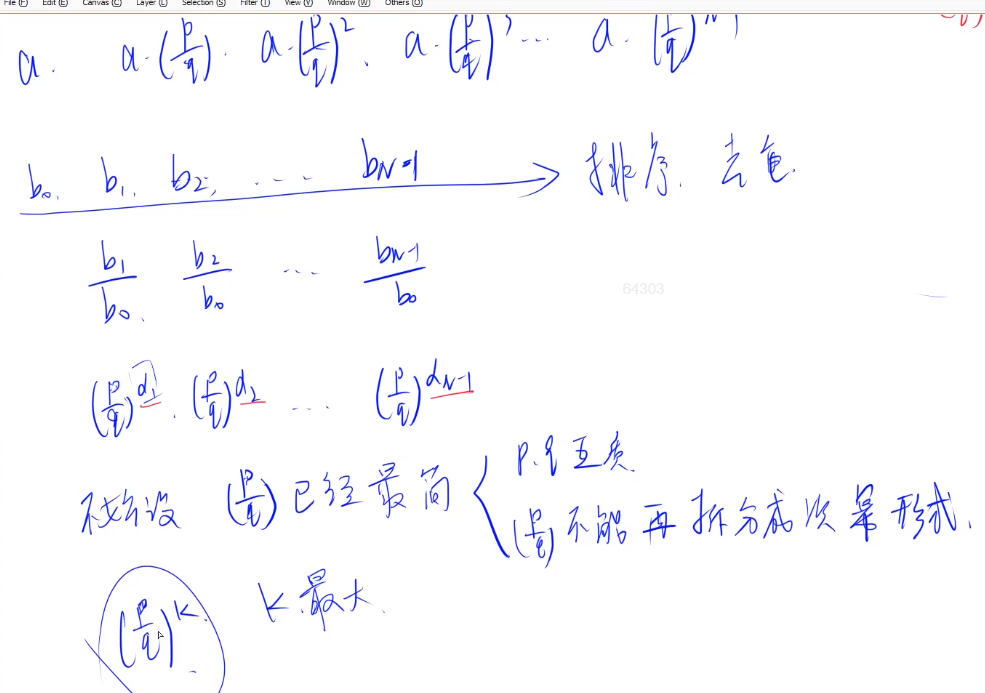 File (F) Edit (E) Canvas (C) Layer (L) Selection (S) Filter (T) View (V) Window (W) Others (O)
a. a·(p/q). a·(p/q)², a·(p/q)³ ... a·(p/q)ᴺ⁻¹
b₀, b₁, b₂, .... b_N-1 排序、去重.
b₁/b₀. b₂/b₀ ... b_N-1/b₀
64303
(p/q)^d₁. (p/q)^d₂ ... (p/q)^d_N-1
p.q互质.
不妨设 (p/q) 已经最简
(p/q) 不能再拆分成次幂形式.
(p/q)^k. k最大.